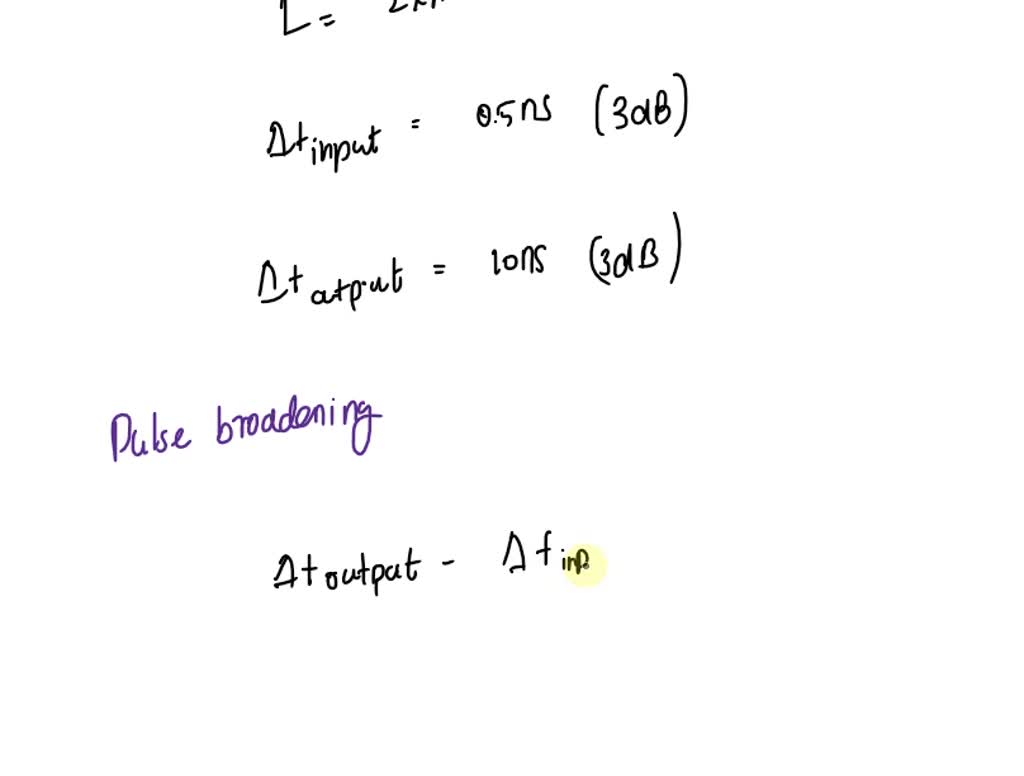 L =
Δt input = 0.5ns (3dB)
Δt atput = 10ns (3dB)
Pulse broadening
Δt output - Δt inp